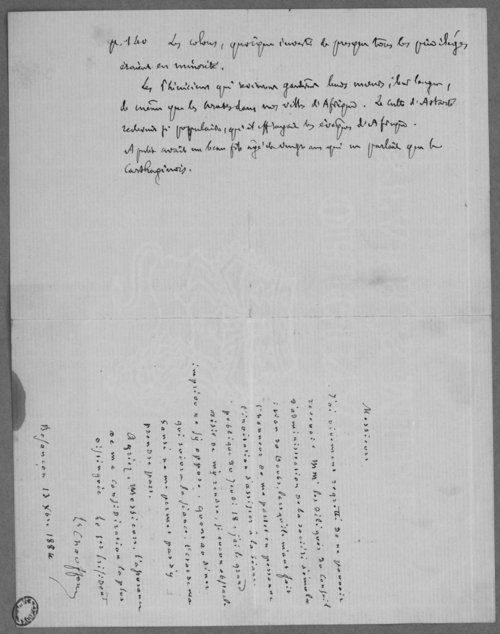 p. 140 Les colons, quoique investis de presque tous les privilèges
étaient en minorité.
Les Phéniciens qui revinrent gardèrent leurs mœurs, leur langue,
de même que les Arabes dans nos villes d'Afrique. Le culte d'Astarté
redevint si populaire, qu'il effrayait les évêques d'Afrique.
Apulée avait un beau fils âgé de vingt ans qui ne parlait que le
Carthaginois.
Messieurs
J'ai vivement regretté de ne pouvoir
recevoir MM. les Délégués du Conseil
d'administration de la société d'émula-
tion du Doubs, lorsqu'ils m'ont fait
l'honneur de me porter en personne
l'invitation d'assister à la séance
publique du Jeudi 18. J'ai le grand
désir de m'y rendre, si aucun obstacle
imprévu ne s'y oppose. Quant au diner
qui suivra la séance, l'état de ma
santé ne me permet pas d'y
prendre part.
Agréez, Messieurs, l'assurance
de ma considération la plus
distinguée Le 1er président
Besançon 13 Xbre 1884